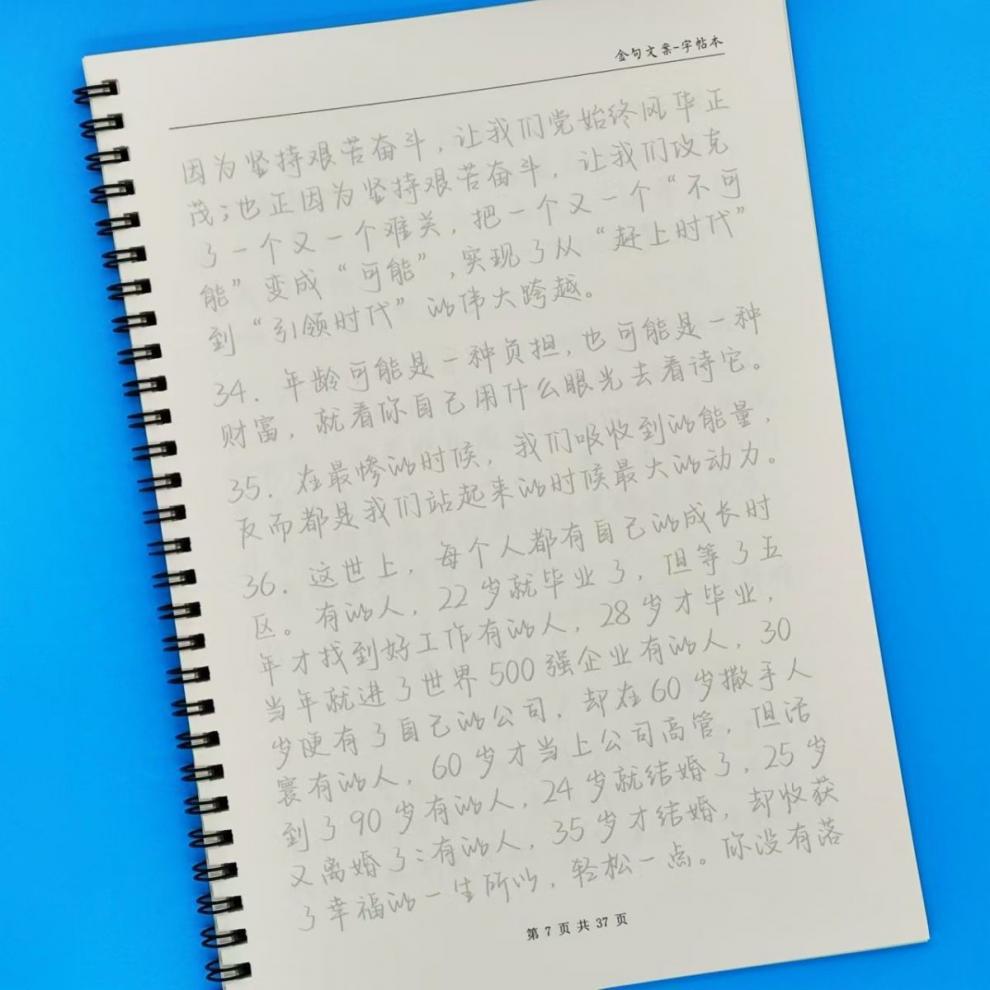 金句文案-字帖本
因为坚持艰苦奋斗，让我们党始终风华正
茂；也正因为坚持艰苦奋斗，让我们攻克
了一个又一个难关，把一个又一个“不可
能”变成“可能”，实现了从“赶上时代”
到“引领时代”的伟大跨越。
34. 年龄可能是一种负担，也可能是一种
财富，就看你自己用什么眼光去看诗它。
35. 在最惨的时候，我们吸收到的能量，
反而都是我们站起来的时候最大的动力。
36. 这世上，每个人都有自己的成长时
区。有的人，22岁就毕业了，但等了五
年才找到好工作有的人，28岁才毕业，
当年就进了世界500强企业有的人，30
岁便有了自己的公司，却在60岁撒手人
寰有的人，60岁才当上公司高管，但活
到了90岁有的人，24岁就结婚了，25岁
又离婚了：有的人，35岁才结婚，却收获
了幸福的一生所以，轻松一点。你没有落
第 7 页 共 37 页